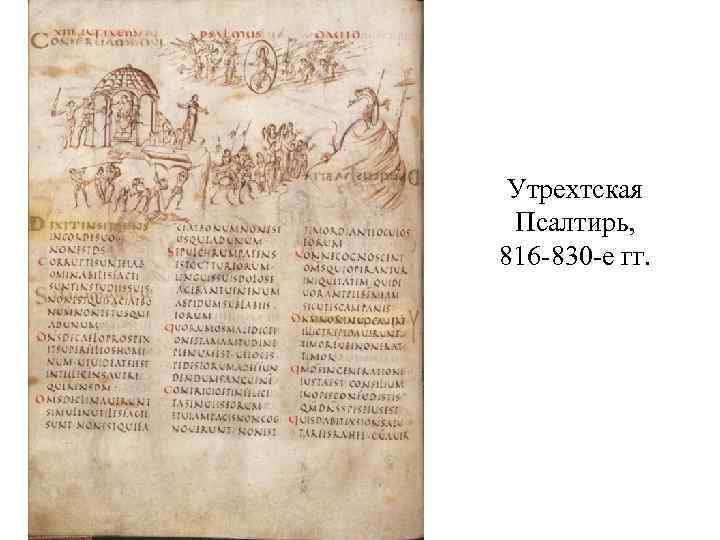 PSALMUS
DIXITINSIPIENS
INCORDESUO
NONESTDS
CORRUPTISUNTETAB
OMINABILESFACTI
SUNTINSTUDIISSUIS
NONESTQUIFACIATBO
NUMNONESTUSQUE
ADUNUM
DNSDECAELOPROSPEX
ITSUPERFILIOSHOMI
NUMUTUIDEATSIEST
INTELLEGENSAUTRE
QUIRENSDM
OMSDECLINAUERUNT
SIMULINUTILESFACTI
SUNTNONESTQUIFA
CIATBONUMNONEST
USQUEADUNUM
SEPULCHRUMPATENS
ESTGUTTUREORUM
LINGUISSUISDOLOSE
AGEBANTUENENUM
ASPIDUMSUBLABIIS
EORUM
QUORUMOSMALEDICTI
ONEETAMARITUDINE
PLENUMEST UELOCES
PEDESEORUMADEFFUN
DENDUMSANGUINEM
CONTRITIOETINFELICI
TASINUIISEORUM
ETUIAMPACISNONCOG
NOUERUNT NONEST
TIMORDIANTEOCULOS
EORUM
NONNECOGNOSCENT
OMSQUIOPERANTUR
INIQUITATEM QUIDE
UORANTPLEBEMMEAM
SICUTESCAMPANIS
DNMNONINUOCAUERUNT
ILLICTREPIDAUERUNT
TIMOREUBINONERAT
TIMOR
QMDSINGENERATIONE
IUSTAEST CONSILIUM
INOPISCONFUDISTIS
QMDNSSPESEIUSEST
QUISDABITEXSIONSALU
TAREISRAHEL CUMAUER
Утрехтская
Псалтирь,
816-830-е гг.